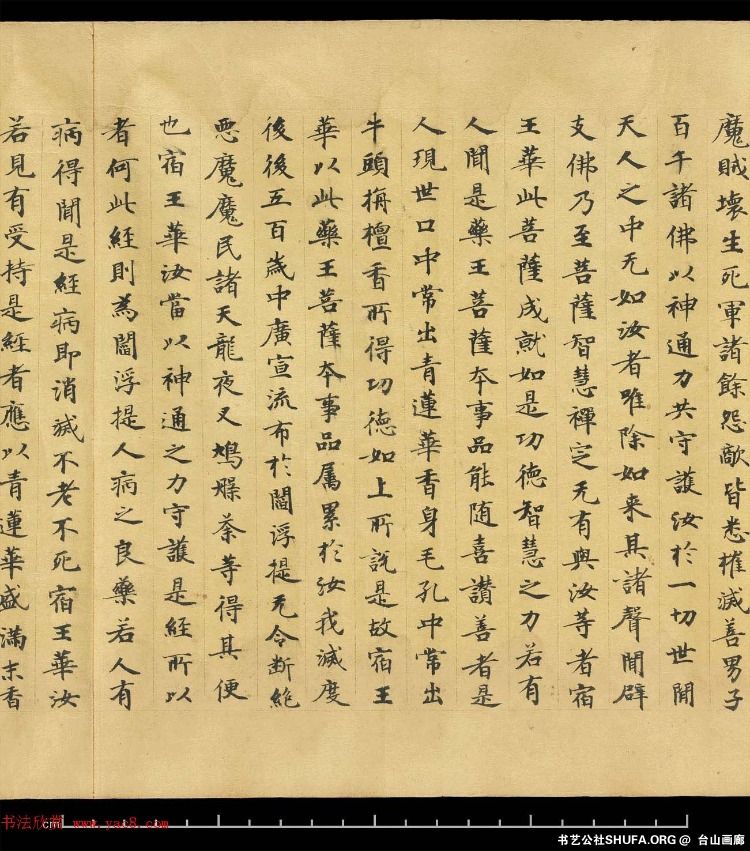 魔賊壞生死軍諸餘怨敵皆悉摧滅善男子
百千諸佛以神通力共守護汝於一切世間
天人之中无如汝者唯除如来其諸聲聞辟
支佛乃至菩薩智慧禪定无有與汝等者宿
王華此菩薩成就如是功德智慧之力若有
人聞是藥王菩薩本事品能随喜讚善者是
人現世口中常出青蓮華香身毛孔中常出
牛頭栴檀香所得功德如上所説是故宿王
華以此藥王菩薩本事品属累於汝我滅度
後後五百歳中廣宣流布於閻浮提无令断絶
悪魔魔民諸天龍夜叉鳩槃荼等得其便
也宿王華汝當以神通之力守護是經所以
者何此經則為閻浮提人病之良藥若人有
病得聞是經病即消滅不老不死宿王華汝
若見有受持是經者應以青蓮華盛滿末香
cm
书法欣赏 www.yac8.com
书艺公社SHUFA.ORG @ 台山画廊